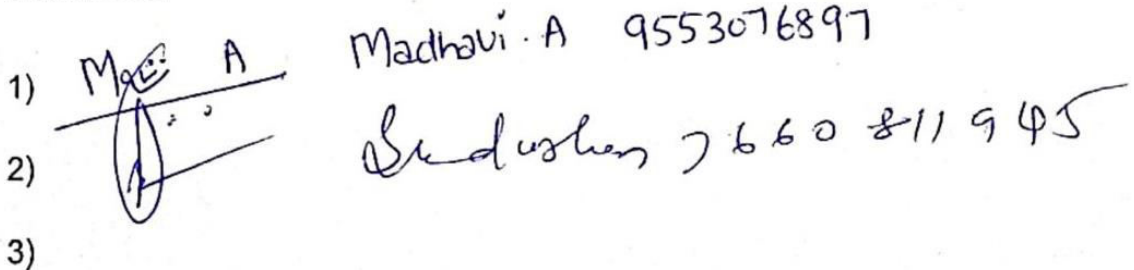 1) A Madhavi. A 9553076897
2) 7660811945
3)